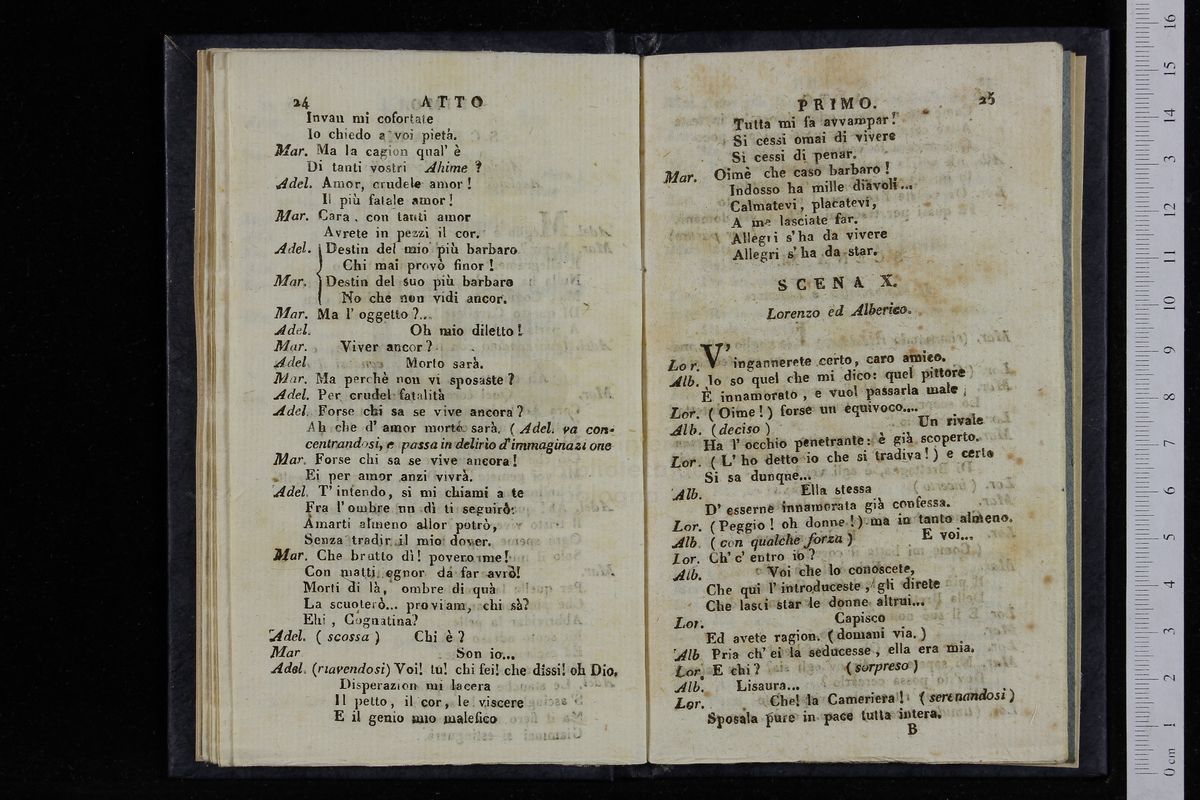 24 ATTO
Invan mi cofortate
Io chiedo a voi pietà.
Mar. Ma la cagion qual' è
Di tanti vostri Ahime ?
Adel. Amor, crudele amor !
Il più fatale amor !
Mar. Cara, con tanti amor
Avrete in pezzi il cor.
Adel. Destin del mio più barbaro
Chi mai provò finor !
Mar. Destin del suo più barbaro
No che non vidi ancor.
Mar. Ma l' oggetto ?...
Adel. Oh mio diletto !
Mar. Viver ancor ?
Adel Morto sarà.
Mar. Ma perchè non vi sposaste ?
Adel. Per crudel fatalità
Adel Forse chi sa se vive ancora ?
Ah che d' amor morto sarà. ( Adel. va con-
centrandosi, e passa in delirio d' immaginazione
Mar. Forse chi sa se vive ancora !
Ei per amor anzi vivrà.
Adel. T' intendo, si mi chiami a te
Fra l' ombre un dì ti seguirò:
Amarti almeno allor potrò,
Senza tradir il mio dover.
Mar. Che brutto dì ! povero me !
Con matti ognor da far avrò!
Morti di là, ombre di quà
La scuoterò... proviam, chi sà?
Ehi , Cognatina?
Adel. ( scossa ) Chi è ?
Mar Son io...
Adel. (riavendosi) Voi! tu! chi fei! che dissi! oh Dio,
Disperazion mi lacera
Il petto, il cor, le viscere
E il genio mio malefico
PRIMO. 25
Tutta mi fa avvampar !
Si cessi omai di vivere
Si cessi di penar.
Mar. Oimè che caso barbaro !
Indosso ha mille diavoli...
Calmatevi, placatevi,
A me lasciate far.
Allegri s' ha da vivere
Allegri s' ha da star.
SCENA X.
Lorenzo ed Alberico.
Lor. V' ingannerete certo, caro amico.
Alb. Io so quel che mi dico: quel pittore
È innamorato , e vuol passarla male ,
Lor. ( Oime ! ) forse un equivoco....
Alb. ( deciso ) Un rivale
Ha l' occhio penetrante: è già scoperto.
Lor. ( L' ho detto io che si tradiva ! ) e certo
Si sa dunque...
Alb. Ella stessa
D' esserne innamorata già confessa.
Lor. (Peggio ! oh donne !) ma in tanto almeno.
Alb. ( con qualche forza ) E voi...
Lor. Ch' c' entro io ?
Alb. Voi che lo conoscete,
Che qui l' introduceste , gli direte
Che lasci star le donne altrui...
Lor. Capisco
Ed avete ragion. ( domani via. )
Alb Pria ch' ei la seducesse , ella era mia.
Lor E chi ? ( sorpreso )
Alb. Lisaura...
Lor. Che! la Cameriera ! ( serenandosi )
Sposala pure in pace tutta intera.
B
0 cm 1 2 3 4 5 6 7 8 9 10 11 12 13 14 15 16